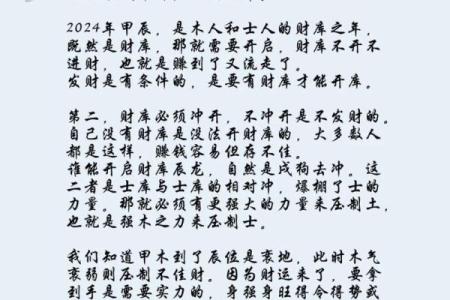 2024年甲辰，是木人和士人的财库之年，
既然是财库，那就需要开启，财库不开不
进财，也就是赚到了又流走了。
发财是有条件的，是要有财库才能开库。
第二，财库必须冲开，不冲开是不发财的。
自己没有财库是没法开财库的，大多数人
都是这样，赚钱容易但存不住。
谁能开启财库辰龙，自然是戌狗去冲。这
二者是士库与士库的相对冲，爆棚了士的
力量。那就必须有更强大的力量来压制土，
也就是强木之力来压制士。
我们知道甲木到了辰位是衰地，此时木气
衰弱则压制不住财。因为财运来了，要拿
到手是需要实力的，身强身旺得令得势或